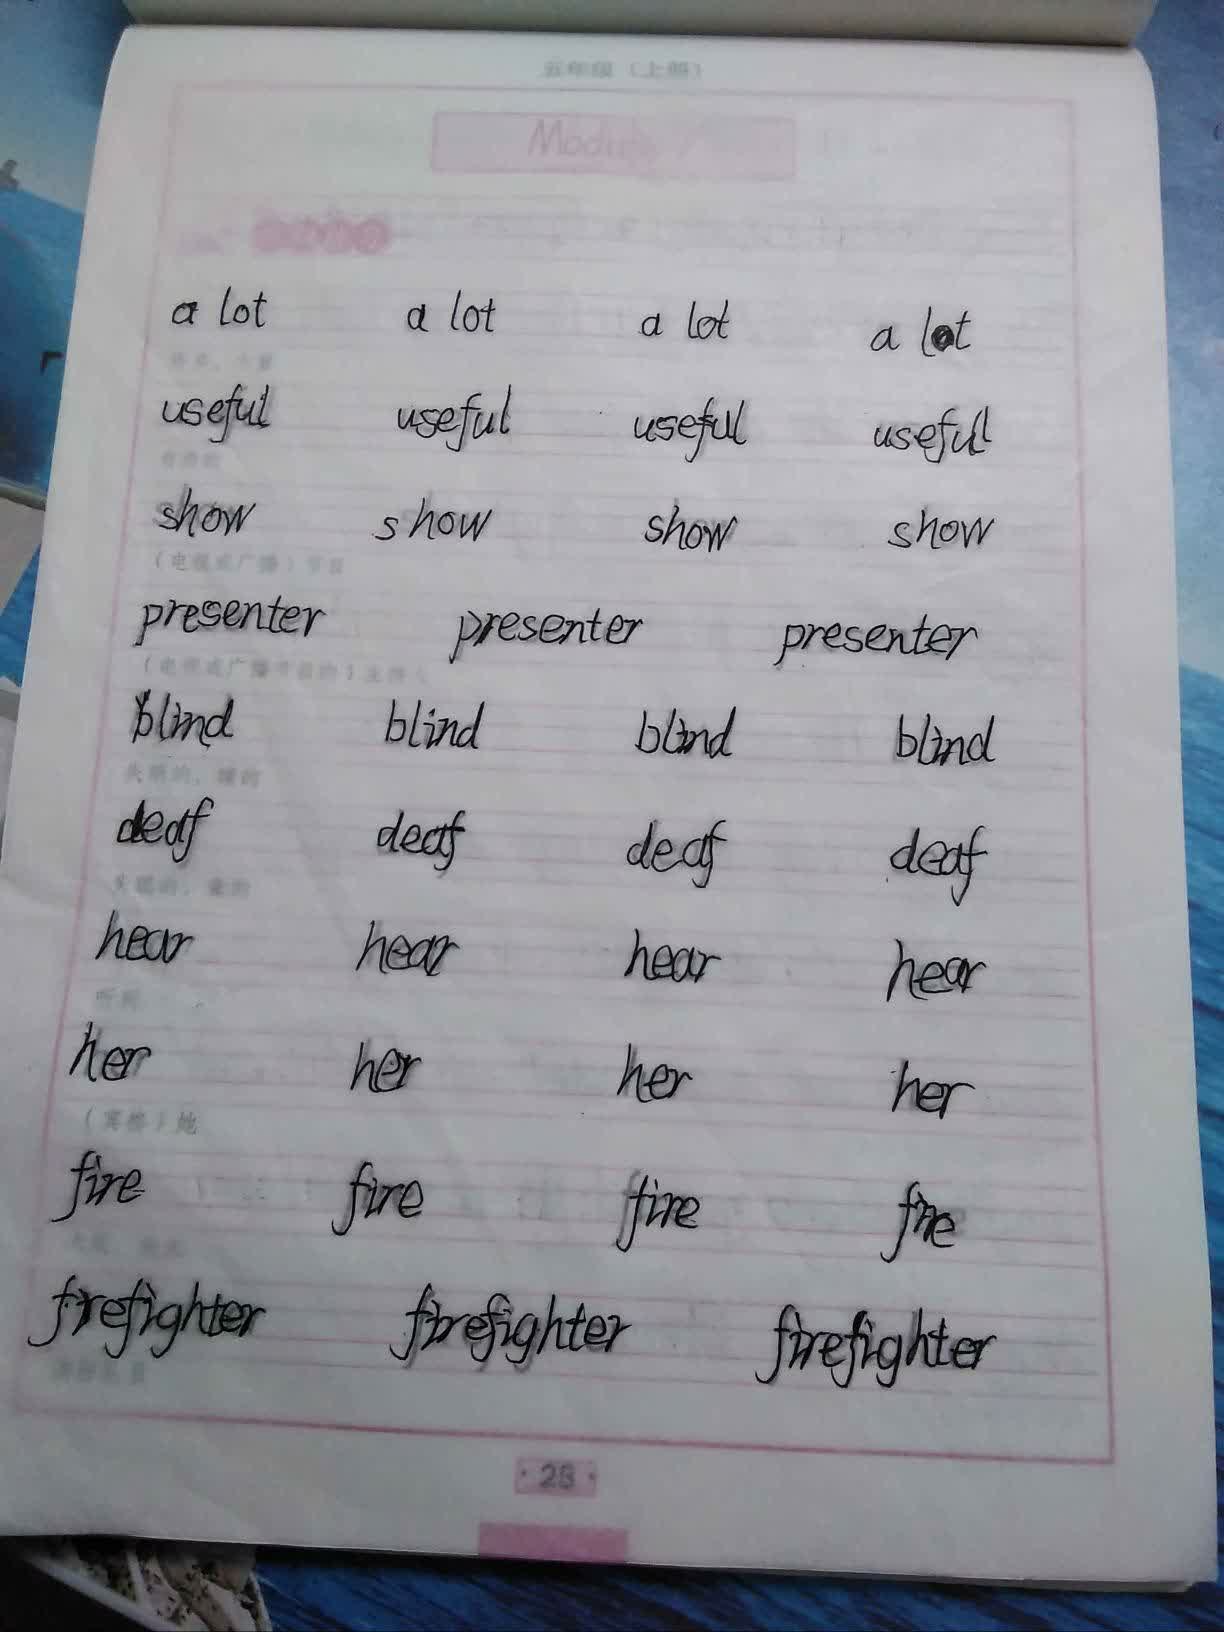 五年级（上册）
Module 7
a lot a lot a lot a lot
useful useful useful useful
有用的
show show show show
（电视或广播）节目
presenter presenter presenter
（电视或广播节目的）主持人
blind blind blind blind
失明的，瞎的
deaf deaf deaf deaf
失聪的，聋的
hear hear hear hear
听见
her her her her
（宾格）她
fire fire fire fire
firefighter firefighter firefighter
消防队员
· 28 ·